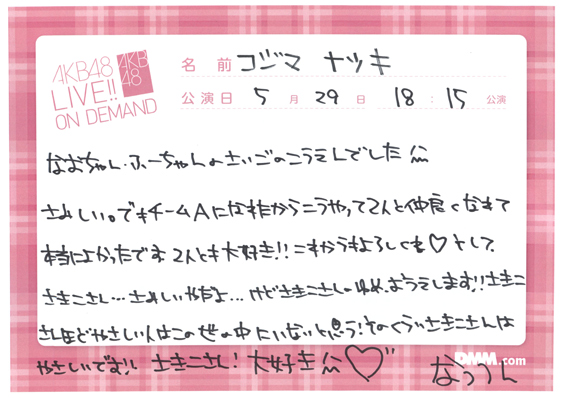 AKB48
LIVE!!
ON DEMAND
AKB
48
名 前 コジマ ナツキ
公演日 5 月 29 日 18 : 15 公演
なおちゃん・ふーちゃんのさいごのこうえんでした
さみしい。でもチームAになれたからこうやって2人と仲良くなれて
本当によかったです 2人とも大好き!! これからもよろしくね♡ そして、
さきこさん…さみしいやだよ…けどさきこさんのゆめ、おうえんします!!さきこ
さんほどやさしい人はこの世の中にいないと思う!そのくらいさきこさんは
やさしいです!! さきこさん! 大好き ♡
なっつん
DMM.com